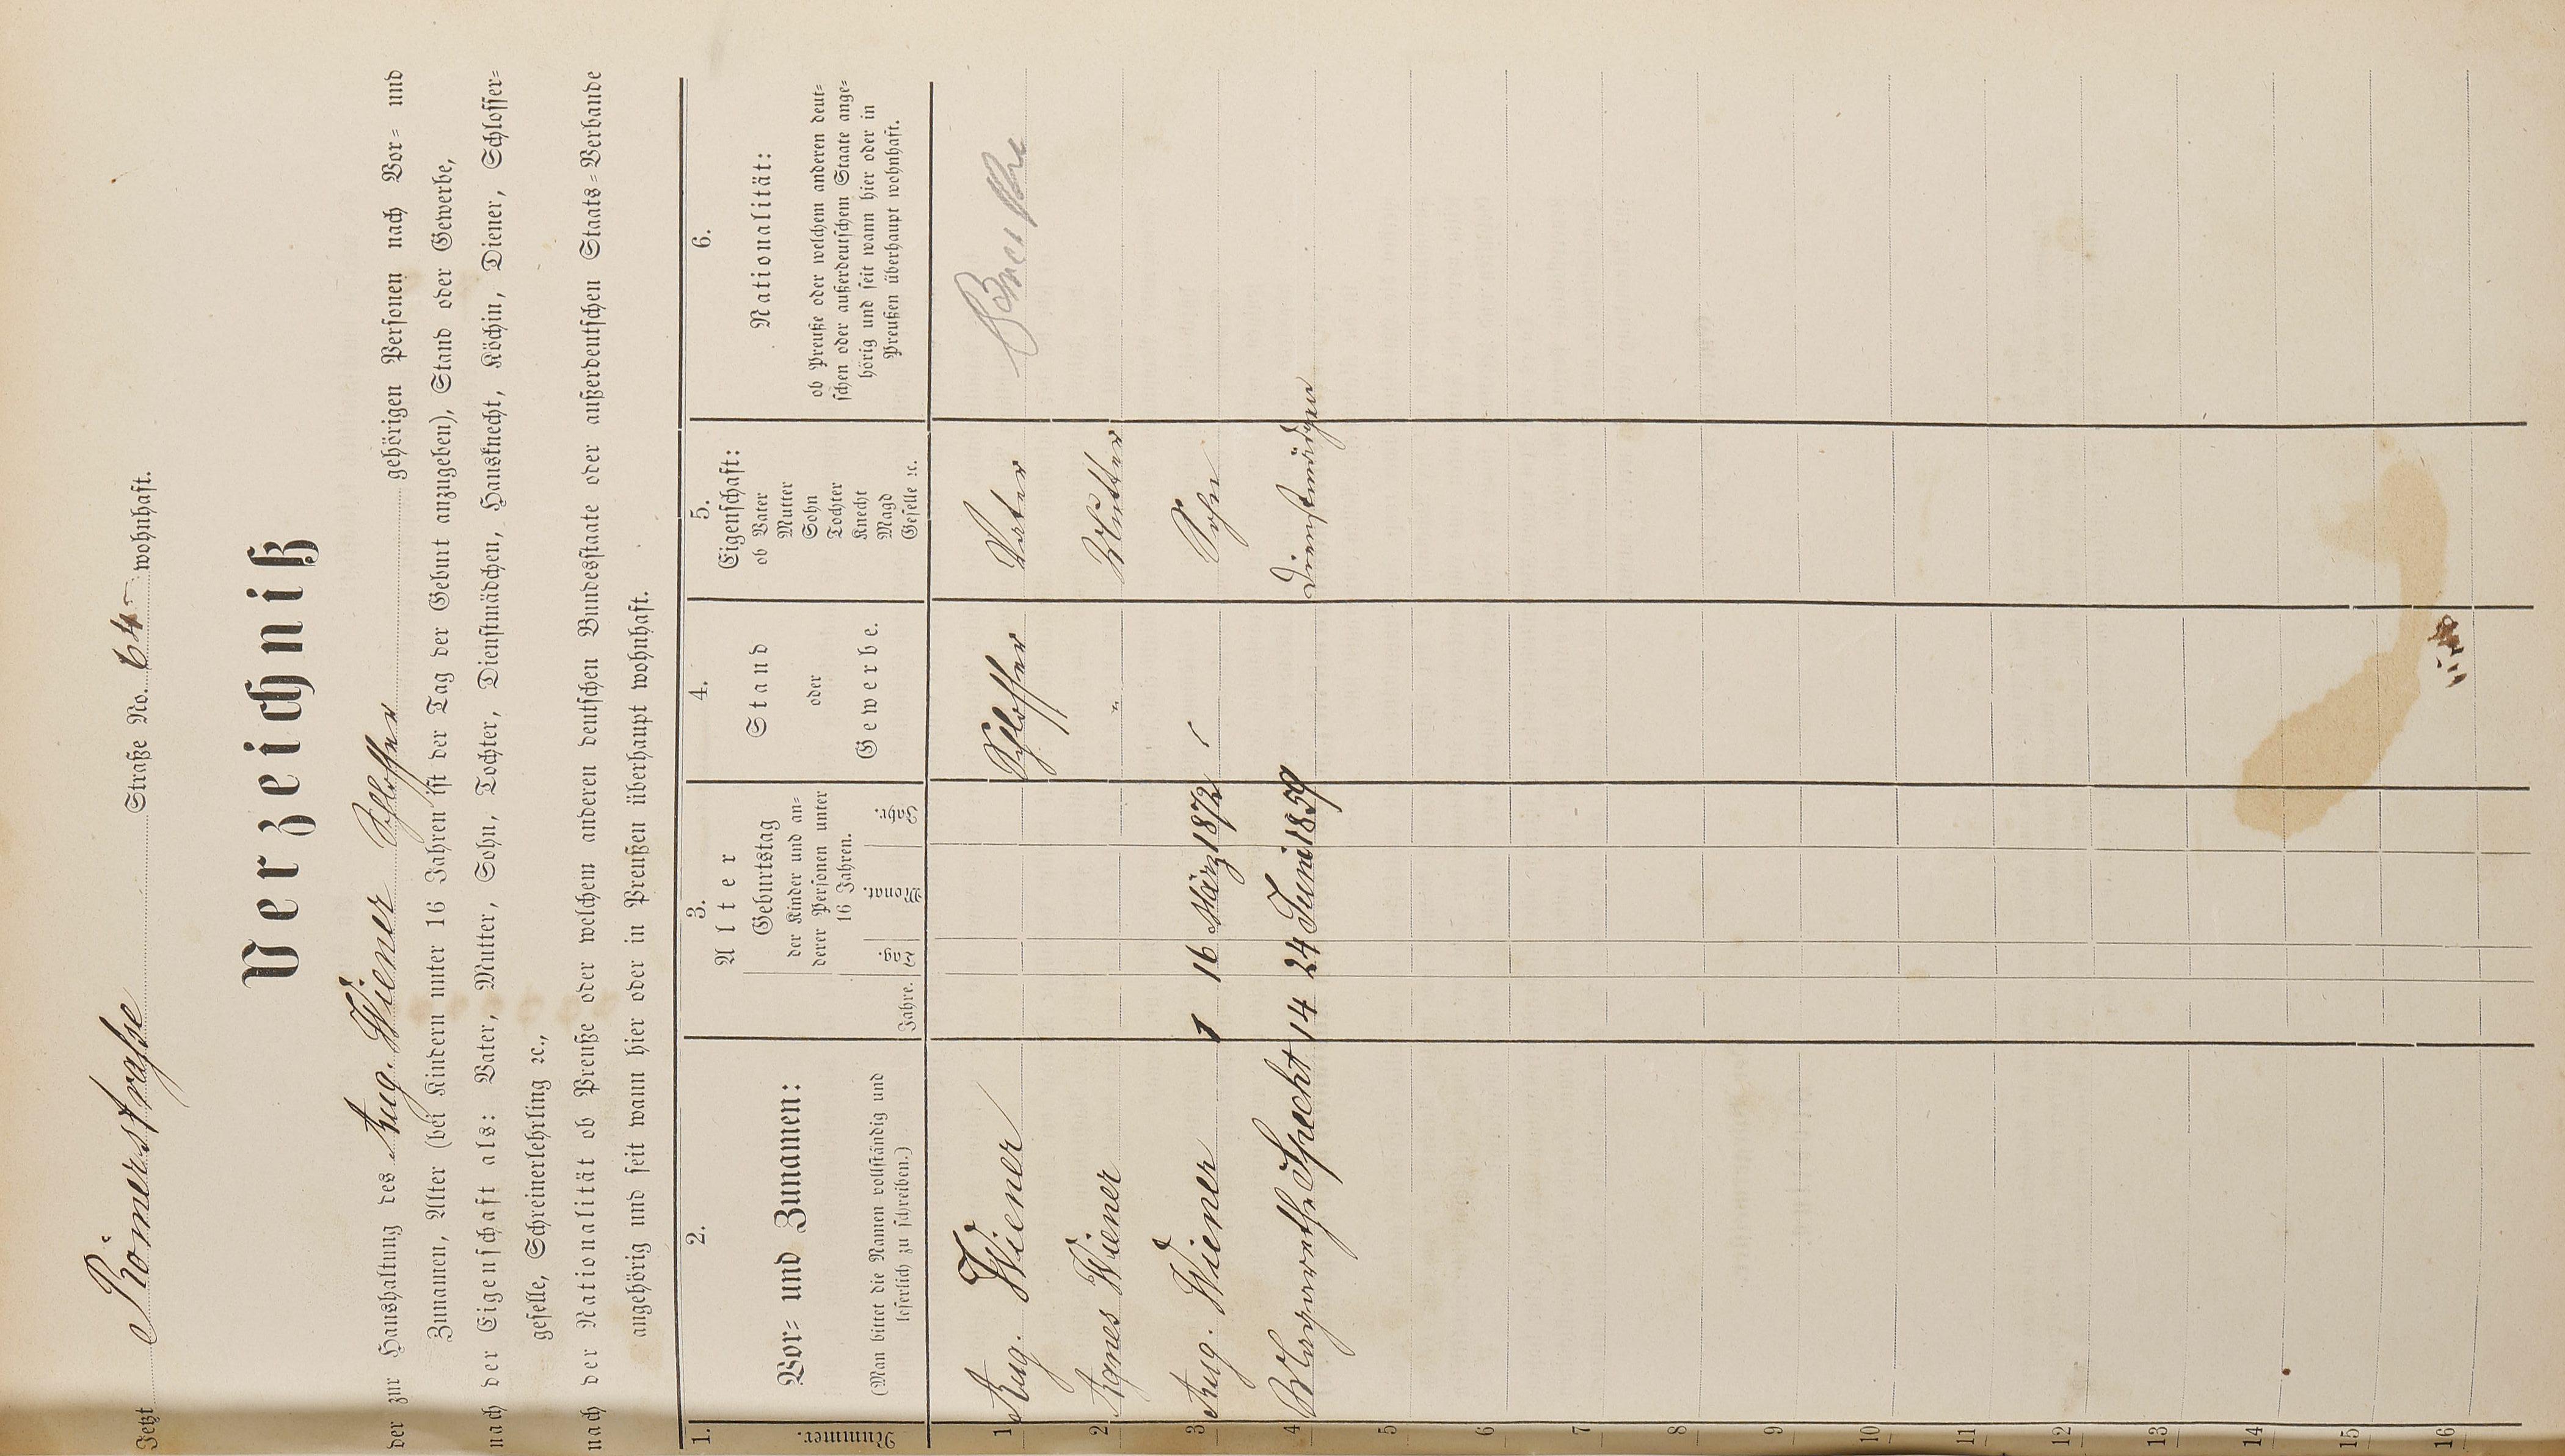 Jetzt Römerstraße Straße No. 64 wohnhaft.
Verzeichniß
der zur Haushaltung des Aug. Wiener Schlosser gehörigen Personen nach Vor- und
Zunamen, Alter (bei Kindern unter 16 Jahren ist der Tag der Geburt anzugeben), Stand oder Gewerbe,
nach der Eigenschaft als: Vater, Mutter, Sohn, Tochter, Dienstmädchen, Hausknecht, Köchin, Diener, Schlosser-
geselle, Schreinerlehrling ꝛc.,
nach der Nationalität ob Preuße oder welchem anderen deutschen Bundesstaate oder außerdeutschen Staats-Verbande
angehörig und seit wann hier oder in Preußen überhaupt wohnhaft.
1. 2. 3. 4. 5. 6.
Nummer.
Vor- und Zunamen:
(Man bittet die Namen vollständig und
leserlich zu schreiben.)
Alter
Jahre.
Geburtstag
der Kinder und an-
derer Personen unter
16 Jahren.
Tag. Monat. Jahr.
Stand
oder
Gewerbe.
Eigenschaft:
ob Vater
Mutter
Sohn
Tochter
Knecht
Magd
Geselle ꝛc.
Nationalität:
ob Preuße oder welchem anderen deut-
schen oder außerdeutschem Staate ange-
hörig und seit wann hier oder in
Preußen überhaupt wohnhaft.
1 Aug. Wiener Schlosser Vater
2 Agnes Wiener " Mutter
3 Aug. Wiener 1 16 März 1872 Sohn
4 Margarethe Specht 14 24 Juni 1859 Dienstmädchen
5
6
7
8
9
10
11
12
13
14
15
16